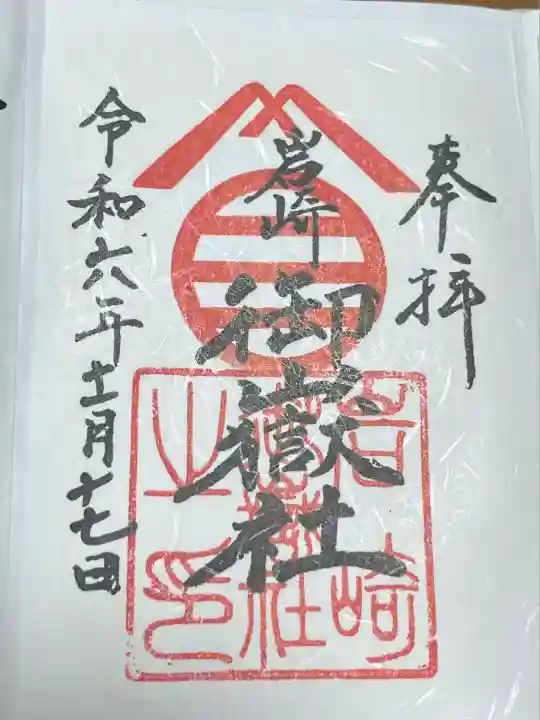 奉拝
岩崎
御嶽社
令和六年十一月十七日
岩崎
御嶽社
之印